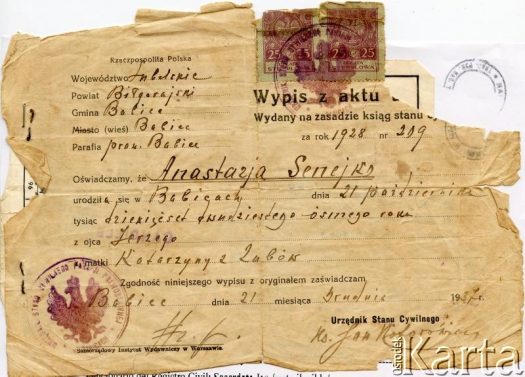 Rzeczpospolita Polska
Województwo Lubelskie
Powiat Biłgorajski
Gmina Babice
Miasto (wieś) Babice
Parafia praw. Babice
25 25
Wypis z aktu
Wydany na zasadzie ksiąg stanu
za rok 1928 № 209
Oświadczamy, że Anastazja Senejko
urodziła się w Babicach dnia 21 października
tysiąc dziewięćset dwudziestego ósmego roku
z ojca Jerzego
matki Katarzyny z Zubów
Zgodność niniejszego wypisu z oryginałem zaświadczam.
Babice dnia 21 miesiąca Grudnia
Urzędnik Stanu Cywilnego
Ks. Jan
Samorządowy Instytut Wydawniczy w Warszawie.
ośrodek
Karta